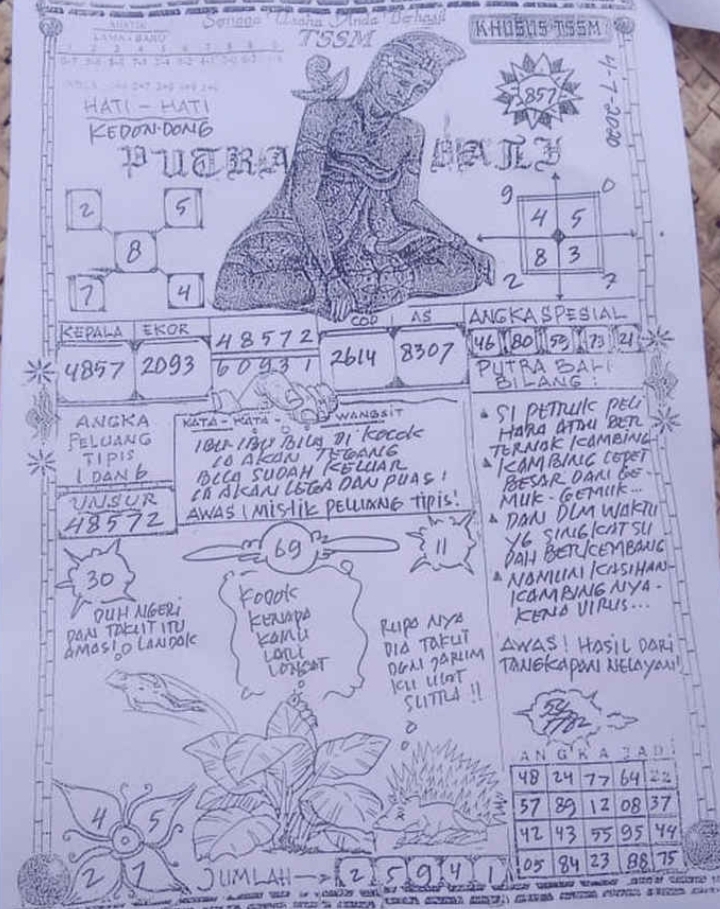 Semoga Usaha Anda Berhasil
TSSM
KHUSUS-TSSM
LAMA - BARU
1 2 3 4 5 6 7 8 9 0
857
4-7-2020
HATI - HATI
KEDONDONG
PUTRA BALI
2 5
8
7 4
9 0
4 5
8 3
2 7
KEPALA EKOR 48572 COP AS ANGKA SPESIAL
4857 2093 60931 2614 8307
46 80 53 73 21
PUTRA BALI
BILANG :
ANGKA
PELUANG
TIPIS
1 DAN 6
UNSUR
48572
KATA - KATA - WANGSIT
IBU-IBU BILA DI KOCOK
IA AKAN TEGANG
BILA SUDAH KELUAR
IA AKAN LEGA DAN PUAS!
AWAS! MISTIK PELUANG TIPIS!
SI PETRUK PELI
HARA ATAU BER
TERNAK KAMBING
KAMBING CEPET
BESAR DAN GE-
MUK-GEMUK...
DAN DLM WAKTU
YG SINGKAT SU
DAH BERKEMBANG
NAMUN KASIHAN
KAMBING NYA-
KENA VIRUS...
AWAS! HASIL DARI
TANGKAPAN NELAYAN!
69
11
30
DUH NGERI
DAN TAKUT ITU
AMASIO LANDAK
KODOK
KENAPA
KAMU
LARI
LONCAT
RUPA NYA
DIA TAKUT
DGN JARUM
KU ULAT
SUTRA !!
ANGKA JADI
48 24 77 64 22
57 89 12 08 37
42 43 55 95 44
05 84 23 88 75
4 5
2 7
JUMLAH → 2 5 9 4 1